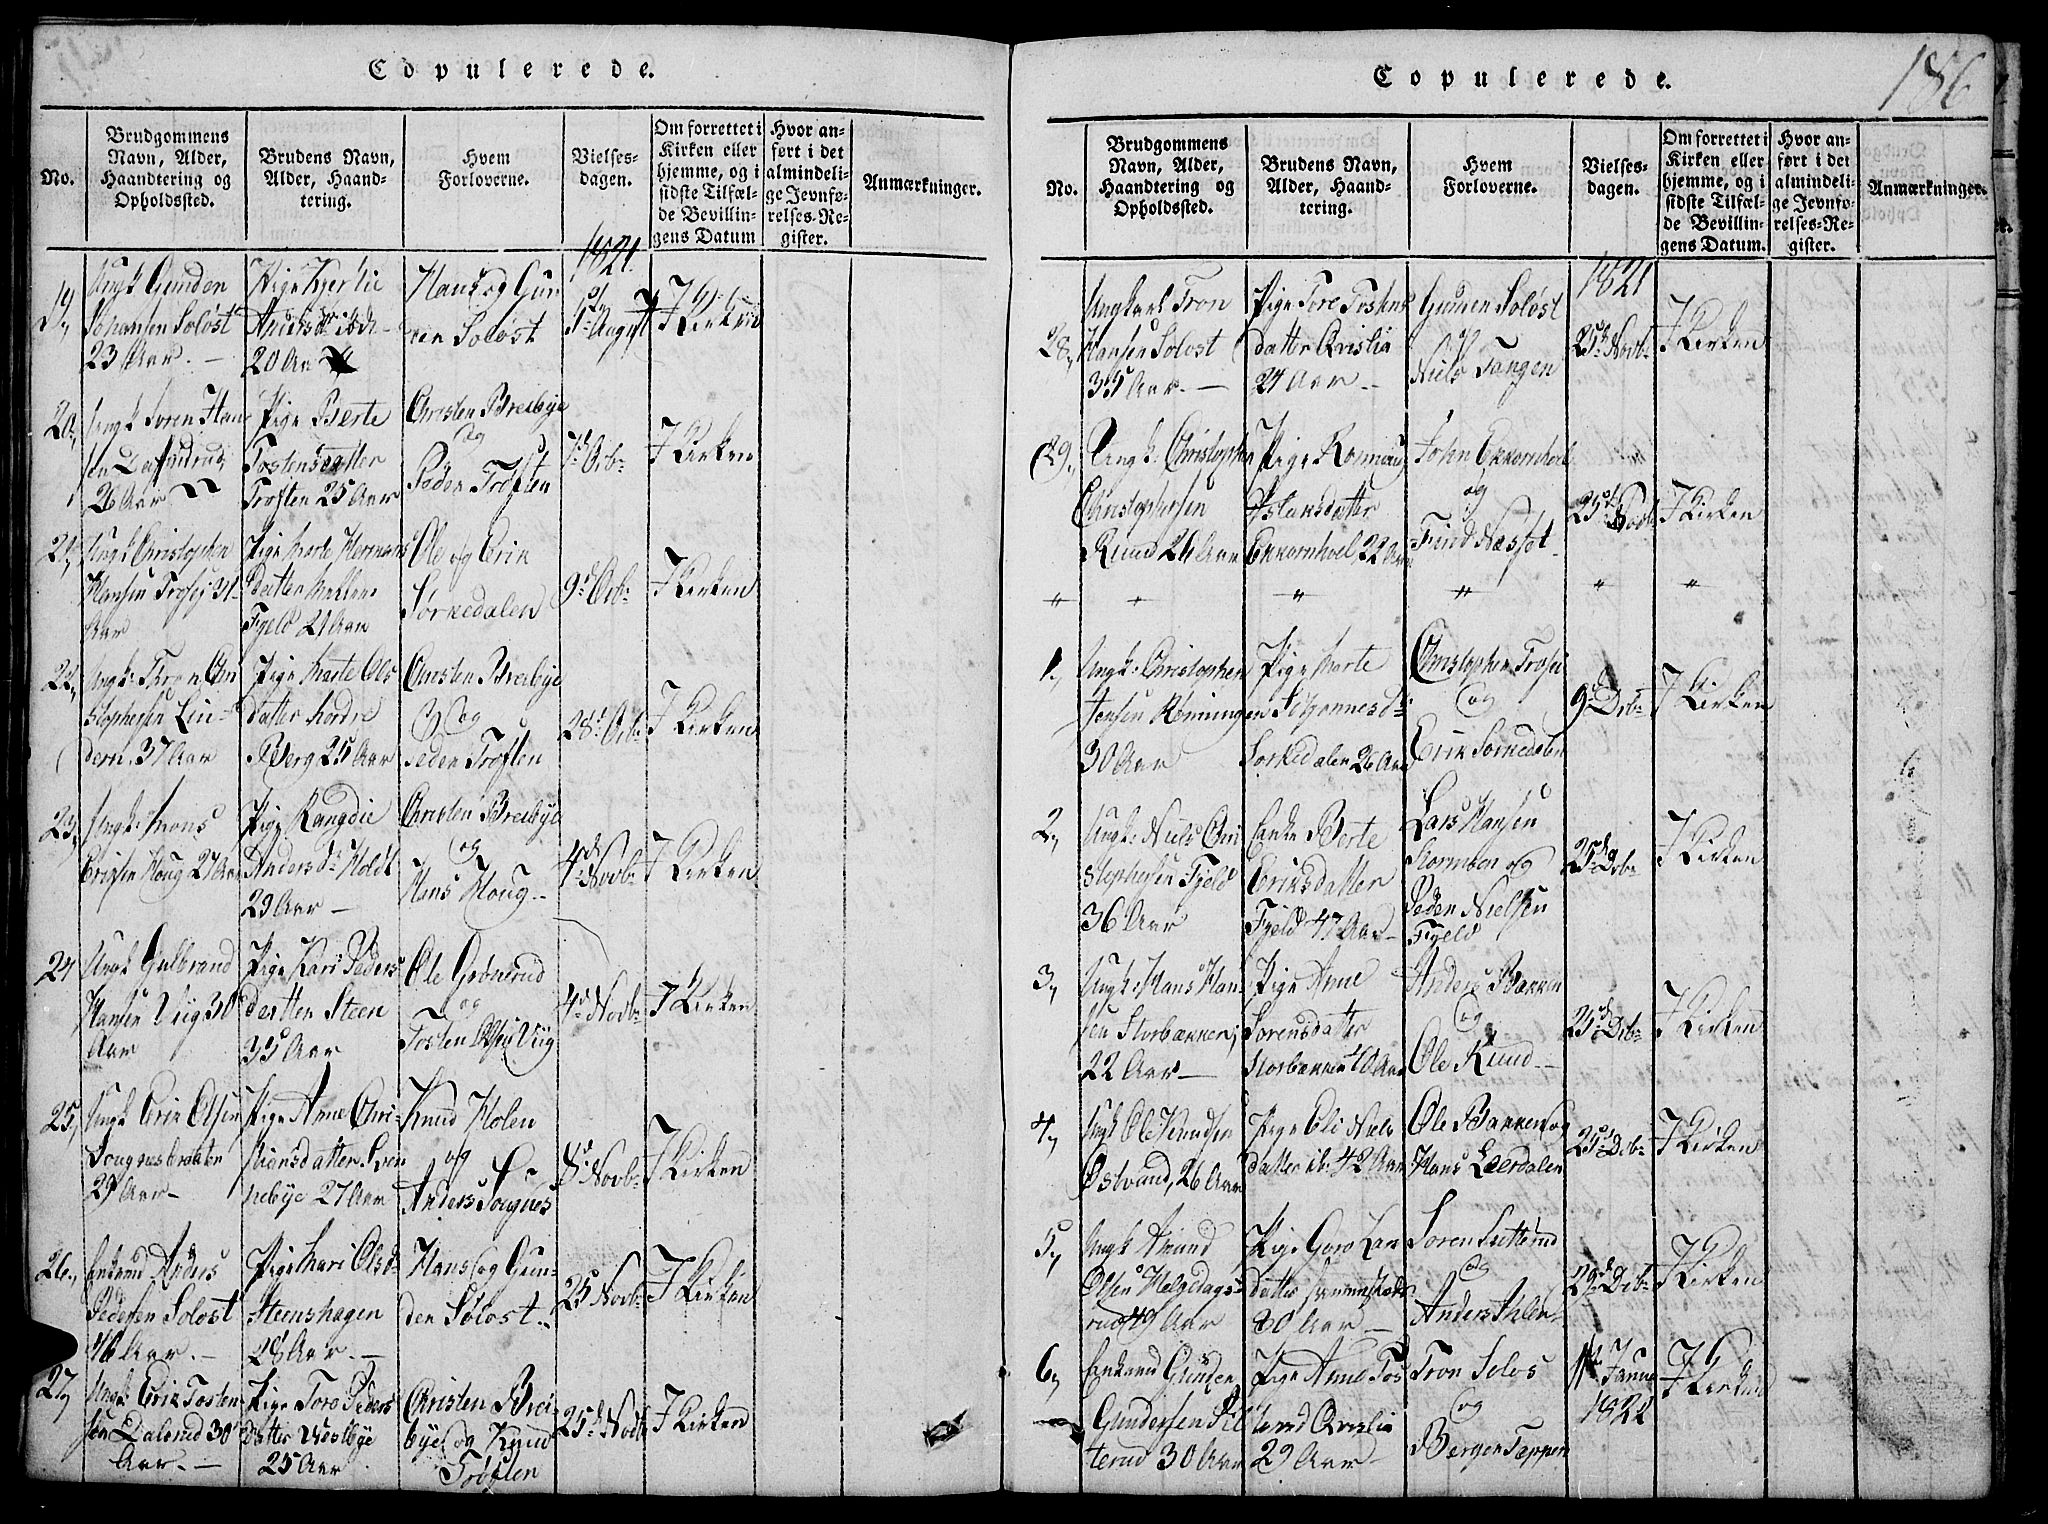 Copulerede.
No.
Brudgommens
Navn, Alder,
Haandtering og
Opholdssted.
Brudens Navn,
Alder, Haand-
tering.
Hvem
Forloverne.
Vielses-
dagen.
Om forrettet i
Kirken eller
hjemme, og i
sidste Tilfæl-
de Bevillin-
gens Datum
Hvor an-
ført i det
almindeli-
ge Jevnfø-
relses-Re-
gister.
Anmærkninger.
1821.
19,
Ungk Gunder
Johansen Soløst
23 Aar. –
Pige Kjersti
Andersdr ibdr
20 Aar
Hans og Gun
Soløst
August
I Kirken
20,
Ungk Soren Han
sen
26 Aar
Pige Berte
Tostensdatter
Troften 25 Aar
Christen Breibye
og
Peder Troften
7d Octbr
I Kirken
21,
Ungk Christopher
Hansen Trosei 31
Aar
Pige Marte Hermans
Datter
Fjeld 21 Aar
Ole og Erik
Sørkedalen
9d Octbr
I Kirken
22,
Ungk: Thron Chri
stophersen Lin-
dern. 37 Aar
Pige Marte Ols
datter Nordre
Berg 25 Aar
Christen Breibye
og
Peder Troften
28d Octbr
I Kirken
23,
Ungk: Mons
Ericsen Houg 27 Aar
Pige Rangdie
Andersdr Holdt
29 Aar –
Christen Breibye
og
Hans Houg. –
4de Novbr
I Kirken
24
Ungk Gulbrand
Hansen Viig 30
Aar
Pige Kari Peders
datter Steen
35 Aar
Ole Grønerud
og
Tosten Olsen Viig
4d Novbr
I Kirken
25,
Ungk Erik Olsen
Sougnesbraaten
29 Aar –
Pige Anne Chri-
stiansdatter Sven
nebye 27 Aar
Knud Holen
og
Anders Sougnes
Novbr
I Kirken
26,
Enkemd Anders
Pedersen Soløst
46 Aar. –
Pige Mari Olsdr
Steenshagen
28 Aar. –
Hans og Gun-
der Soløst. –
25 Novbr
I Kirken
27,
Ungk Erik Tosten
sen Dalerud 30
Aar. –
Pige Toro Peders
datter Westbye
25 Aar
Christen Brei-
bye og Knud
Troften
25d Novbr
I Kirken
Copulerede.
186
No.
Brudgommens
Navn, Alder,
Haandtering og
Opholdssted.
Brudens Navn,
Alder, Haand-
tering.
Hvem
Forloverne.
Vielses-
dagen.
Om forrettet i
Kirken eller
hjemme, og i
sidste Tilfæl-
de Bevillin-
gens Datum.
Hvor an-
ført i det
almindeli-
ge Jevnfø-
relses-Re-
gister.
Anmærkninger.
1821
28,
Ungkarl Tron
Hansen Soløst
35 Aar. –
Pige Tore Tostens
datter Qvislia
24 Aar. –
Gunder Soløst
og
Niels Tangen
25d Novbr
I Kirken
29,
Ungk: Christopher
Christophersen
Ruud 26 Aar
Pige Ronnaug
Aslaksdatter
Ekkornhoel 22 Aar
John Ekkornhoel
og
Find Næsset
25d Novbr
I Kirken
" " " " " "
1,
Ungk: Christopher
Jensen Rønningen
30 Aar
Pige Marte
Johannesdr
Sørkedalen 26 Aar
Christopher Trosei
og
Erik Sørkedalen
9d Decbr
I Kirken
2,
Ungk: Niels Chri
stophersen Fjeld
36 Aar
Enke Berte
Eriksdatter
Fjeld 47 Aar –
Lars Hansen
og
Peder Nielsen
Fjeld
25de Decbr
I Kirken
3,
Ungk: Hans Han
sen Storbækken
22 Aar –
Pige Anne
Sorensdatter
Storbækken 40 Aar
Anders Bækken
og
Ole Ruud –
25d Decbr
I Kirken
4,
Ungk Ole Knudsen
Østvand, 26 Aar
Pige Eli Niels
datter ib: 42 Aar
Ole Bækken og
Hans Leerdalen
25d Decbr
I Kirken
5,
Ungk Amund
Olsen Helgedags-
rud 49 Aar
Pige Goro Lars
datter
30 Aar –
Soren Sætterud
og
Anders Ihlen
29d Decbr
I Kirken
6,
Enkemd Gunder
Gundersen Sæt
terud 30 Aar
Pige Anne Tos
Qvislia
29 Aar –
Tron Soløs
og
Berger Tæppen
1te Janua
1822
I Kirken